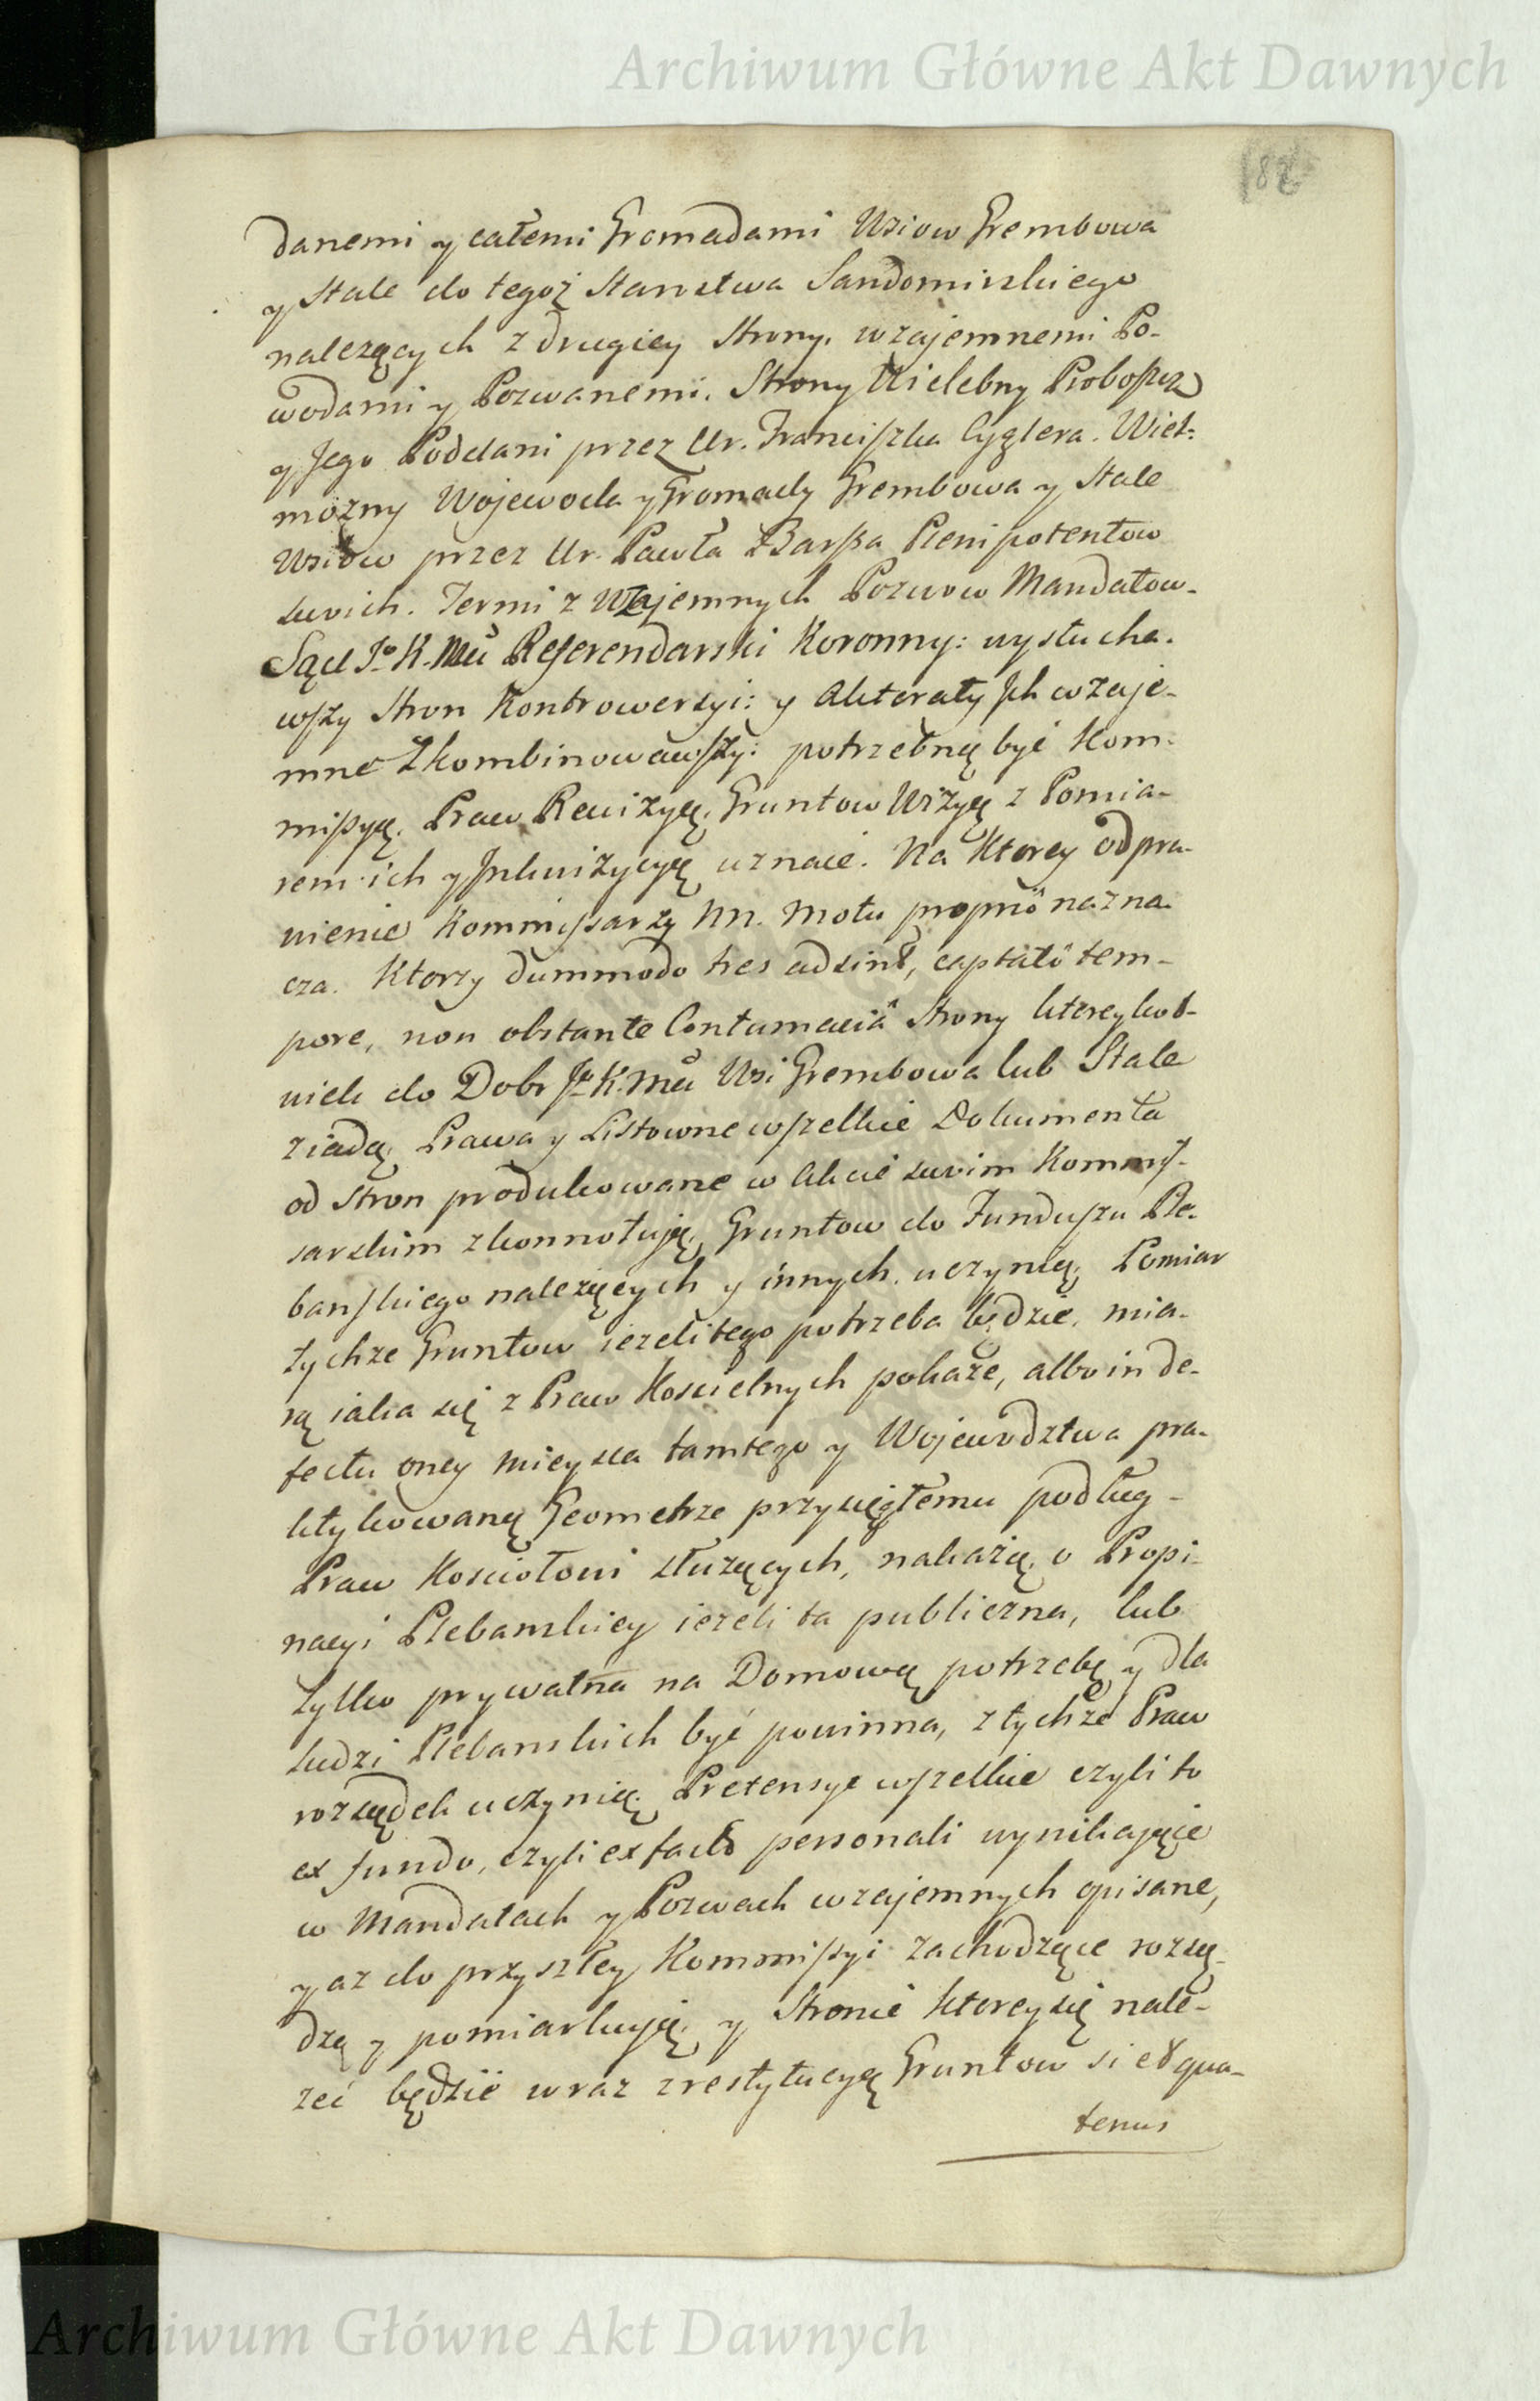 Archiwum Główne Akt Dawnych
182
danemi y całemi Gromadami Wsiow Grembowa
y Stale do tegoż Starostwa Sandomirskiego
należących z drugiey Strony, wzajemnemi Po-
wodami y Pozwanemi. Strony Wielebny Proboszcz
y Jego Poddani przez Ur. Franciszka Cyglera. Wiel-
możny Woiewoda y Gromady Grembowa y Stale
Wsiow przez Ur. Pawła Barssa Plenipotentow
swich. Termi z Wzajemnych Pozwow Mandatow.
Sąd Jo K. Mci Referendarski Koronny: wysłucha-
wszy Stron Kontrowersyi: y Akteraty Jch wzaje-
mne Zkombinowawszy: potrzebną być Kom-
missyą, Praw Rewizyą, Gruntow Wizyą z Pomia-
rem ich y Jnkwizycyą uznaie. Na Ktorey odpra-
wienie Kommissarzy NN. Motu proprio nazna-
cza. Ktorzy dummodo tres adsint, captato tem-
pore, non obstante Contumacia Strony ktoreykol-
wiek do Dobr Jo K. Mci Wsi Grembowa lub Stale
ziadą, Prawa y Listowne wszelkie Dokumenta
od Stron produkowane w Akcie swim Kommis-
sarskim zkonnotują, Gruntow do Funduszu Ple-
banskiego należących y innych, uczynią, Pomiar
tychże Gruntow ieżeli tego potrzeba będzie, mia-
rą iaka się z Praw Kościelnych pokaże, albo in de-
fectu oney mieysca tamtego y Wojewodztwa pra-
ktykowaną Geometrze przysięgłemu podług
Praw Kościołowi służących, nakażą, o Propi-
nacyi Plebanskiey ieżeli ta publiczna, lub
tylko prywatna na Domową potrzebę y dla
ludzi Plebanskich być powinna, z tychże Praw
rozsądek uczynią. Pretensye wszelkie czyli to
ex fundo, czyli ex facto personali wynikające
w Mandatach y Pozwach wzajemnych opisane,
y aż do przyszłey Kommissyi zachodzące rozsą-
dzą y pomiarkują, y Stronie ktorey się nale-
żeć będzie wraz z restytucyą Gruntow si et qua-
tenus
Archiwum Główne Akt Dawnych